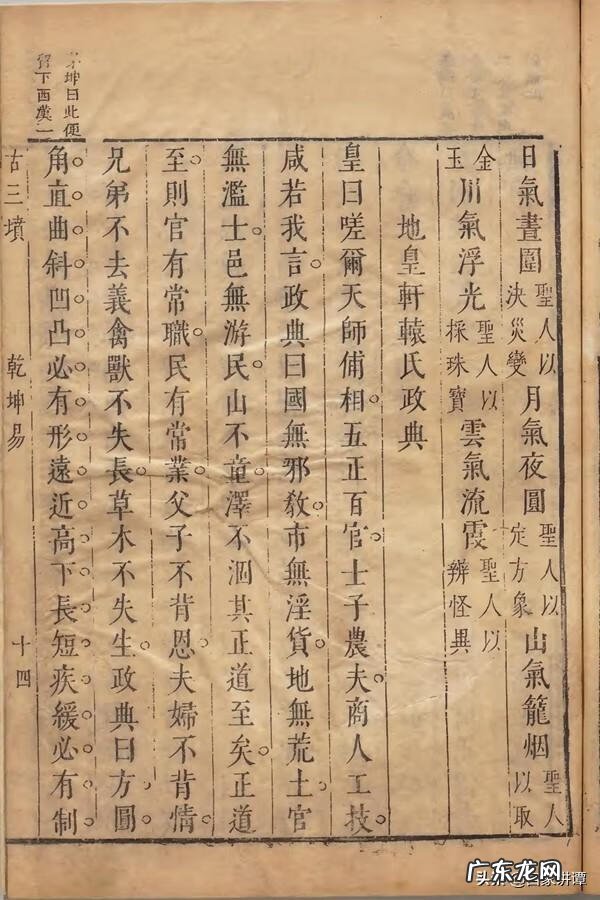 日氣晝圍 聖人以決災變 月氣夜圓 聖人以定方象 山氣籠烟 聖人以取
金玉 川氣浮光 聖人以採珠寶 雲氣流霞 聖人以辨怪異
地皇軒轅氏政典
皇曰嗟爾天師俌相。五正百官。士子農夫。商人工技。
咸若我言。政典曰國無邪敎。市無淫貨。地無荒土。官
無濫士。邑無游民。山不童澤不涸其正道至矣。正道
至。則官有常職。民有常業。父子不背恩。夫婦不背情。
兄弟不去義禽獸不失長。草木不失生。政典曰方。圓。
角。直。曲。斜。凹。凸。必有形。遠。近。高。下。長。短。疾。緩。必。有。制。
坤曰此便
習下西漢一
古三墳
乾坤易
十四
广东龙网